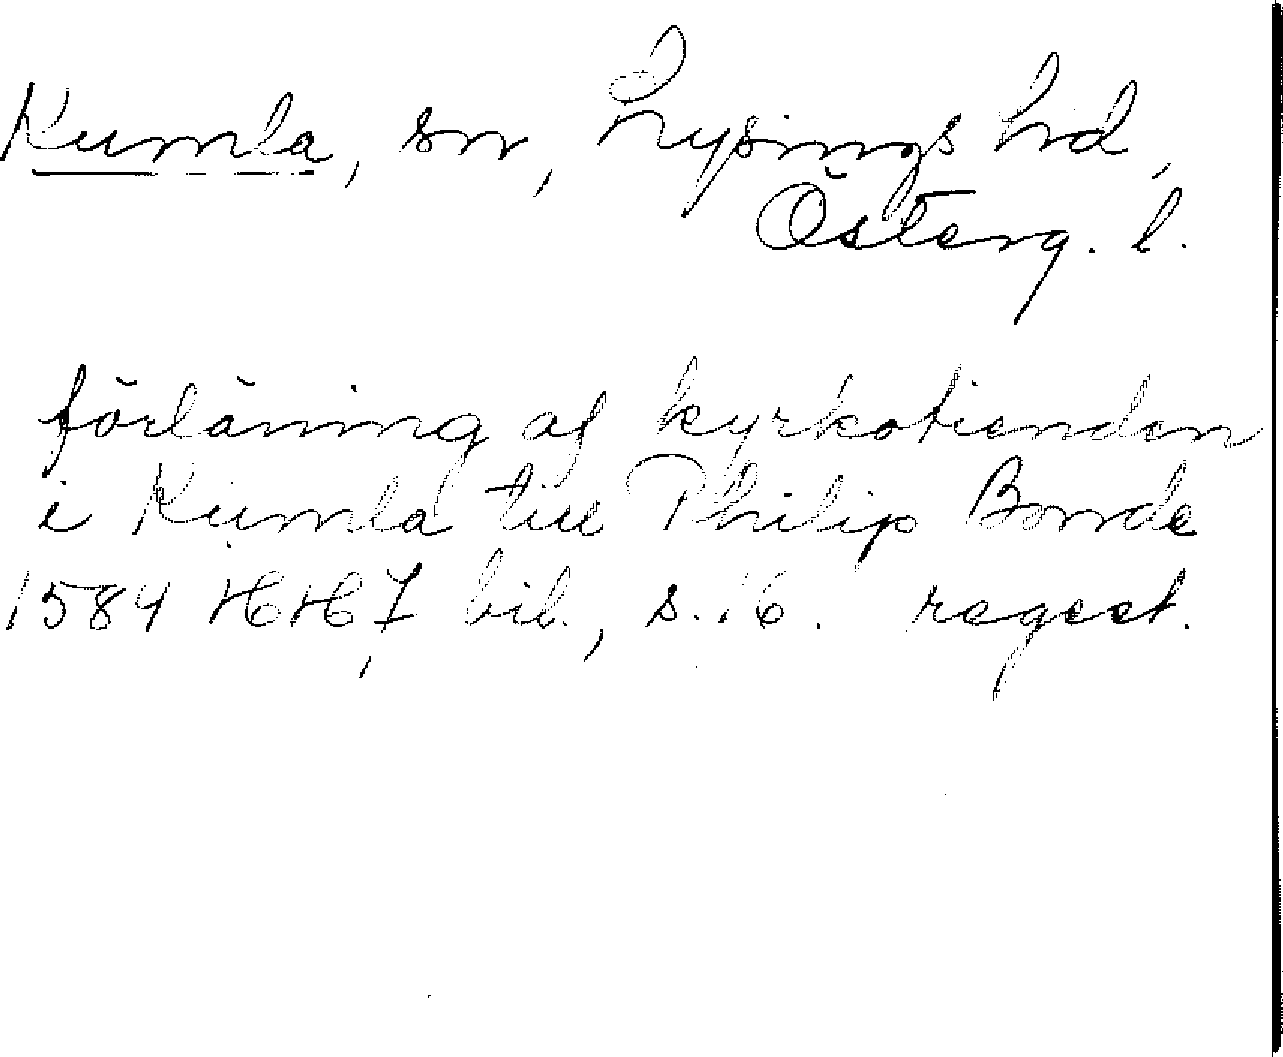 Kumla, sn, Lysings hd,
Österg. l.
förläning af kyrkotienden
i Kumla till Philip Bonde
1584 HH, 7 bil., s. 16. regest.